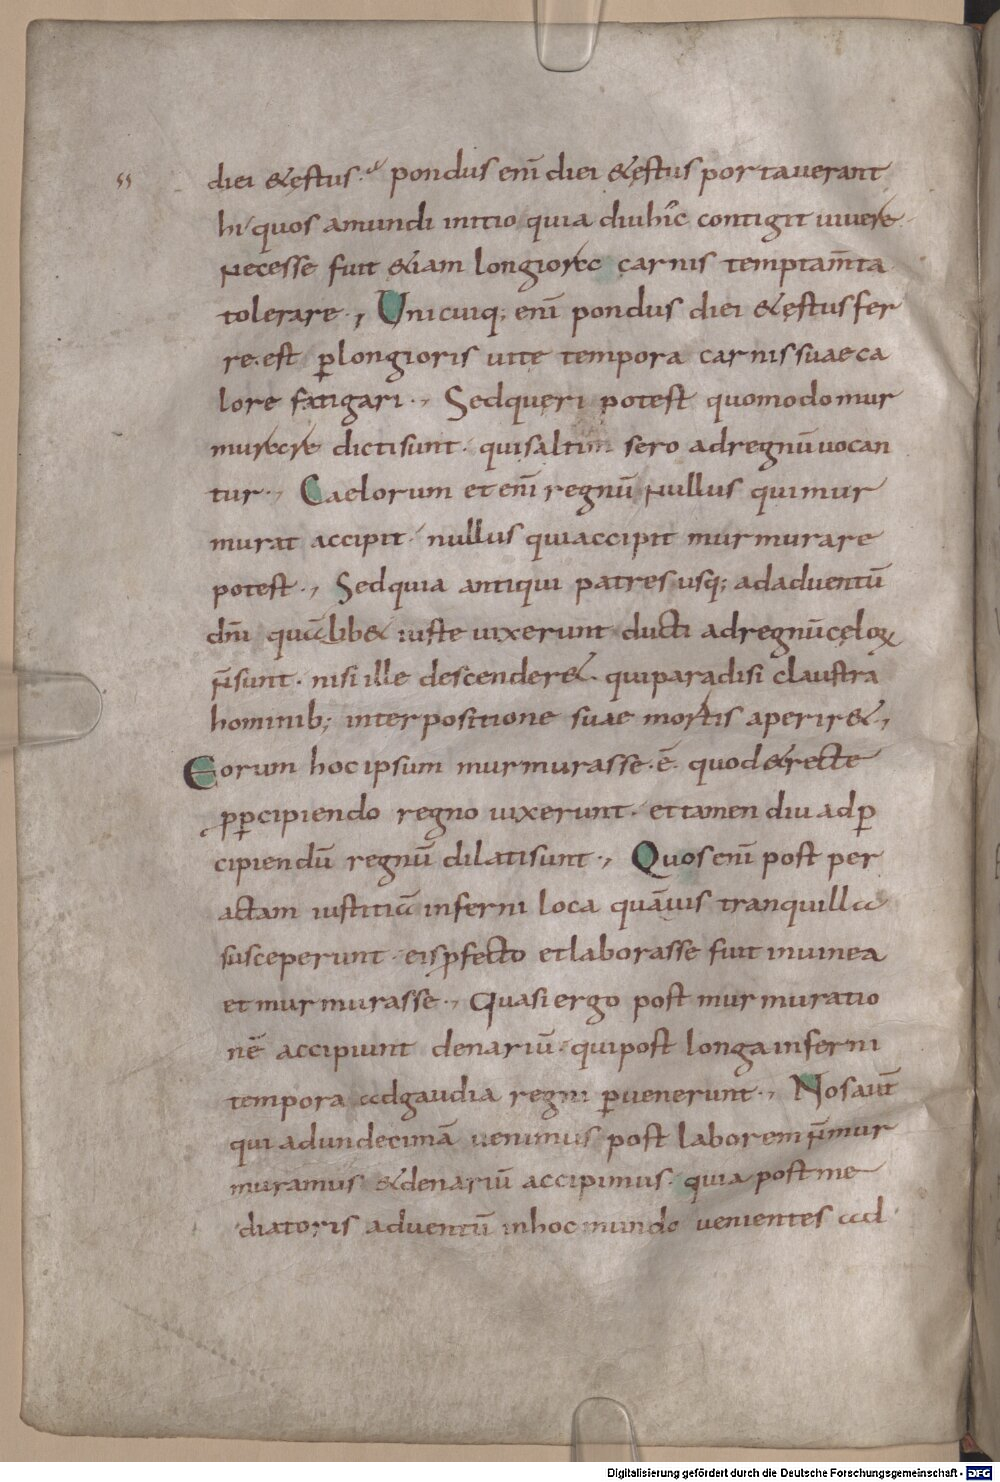 diei & ęstus. pondus eni͞ diei & ęstus portauerant
hi quos a mundi initio quia diu hi͞c contigit uiuere
Necesse fuit &iam longiore carnis temptam̄ta
tolerare ., Unicuiq; eni͞ pondus diei & ęstus fer
re. est p̱ longioris uite tempora carnis suae ca
lore fatigari ., Sed queri potest quomodo mur
murare dicti sunt. qui saltim sero ad regnū uocan
tur ., Caelorum et eni͞ regnū Nullus qui mur
murat accipit. nullus qui accipit murmurare
potest ., Sed quia antiqui patres usq; ad aduentū
dn̄i quālib& iuste uixerunt ducti ad regnū cęloꝝ
n̄ sunt. nisi ille descender&. qui paradisi claustra
hominib; interpositione suae mortis aperir& .,
Eorum hoc ipsum murmurasse. ē. quod & recte
ꝓ p̱cipiendo regno uixerunt. et tamen diu ad p̱
cipiendū regnū dilati sunt ., Quos eni͞ post per
actam iustitiā inferni loca quāuis tranquilla
susceperunt. eis ꝓfecto et laborasse fuit in uinea
et murmurasse ., Quasi ergo post murmuratio
nē accipiunt denariū. qui post longa inferni
tempora ad gaudia regni p̱uenerunt ., Nos aut̄
qui ad undecimā uenimus post laborem n̄ mur
muramus & denariū accipimus. quia post me
diatoris aduentū in hoc mundo uenientes ad
Digitalisierung gefördert durch die Deutsche Forschungsgemeinschaft - DFG